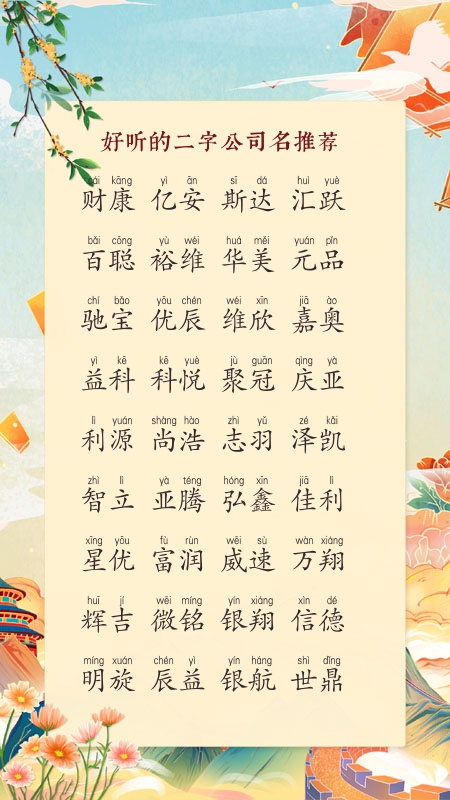 好听的二字公司名推荐
cái kāng yì ān sī dá huì yuè
财康 亿安 斯达 汇跃
bǎi cōng yù wéi huá měi yuán pǐn
百聪 裕维 华美 元品
chí bǎo yōu chén wéi xīn jiā ào
驰宝 优辰 维欣 嘉奥
yì kē kē yuè jù guān qìng yà
益科 科悦 聚冠 庆亚
lì yuán shàng hào zhì yǔ zé kǎi
利源 尚浩 志羽 泽凯
zhì lì yà téng hóng xīn jiā lì
智立 亚腾 弘鑫 佳利
xīng yōu fù rùn wēi sù wàn xiáng
星优 富润 威速 万翔
huī jí wēi míng yín xiáng xìn dé
辉吉 微铭 银翔 信德
míng xuán chén yì yín háng shì dǐng
明旋 辰益 银航 世鼎